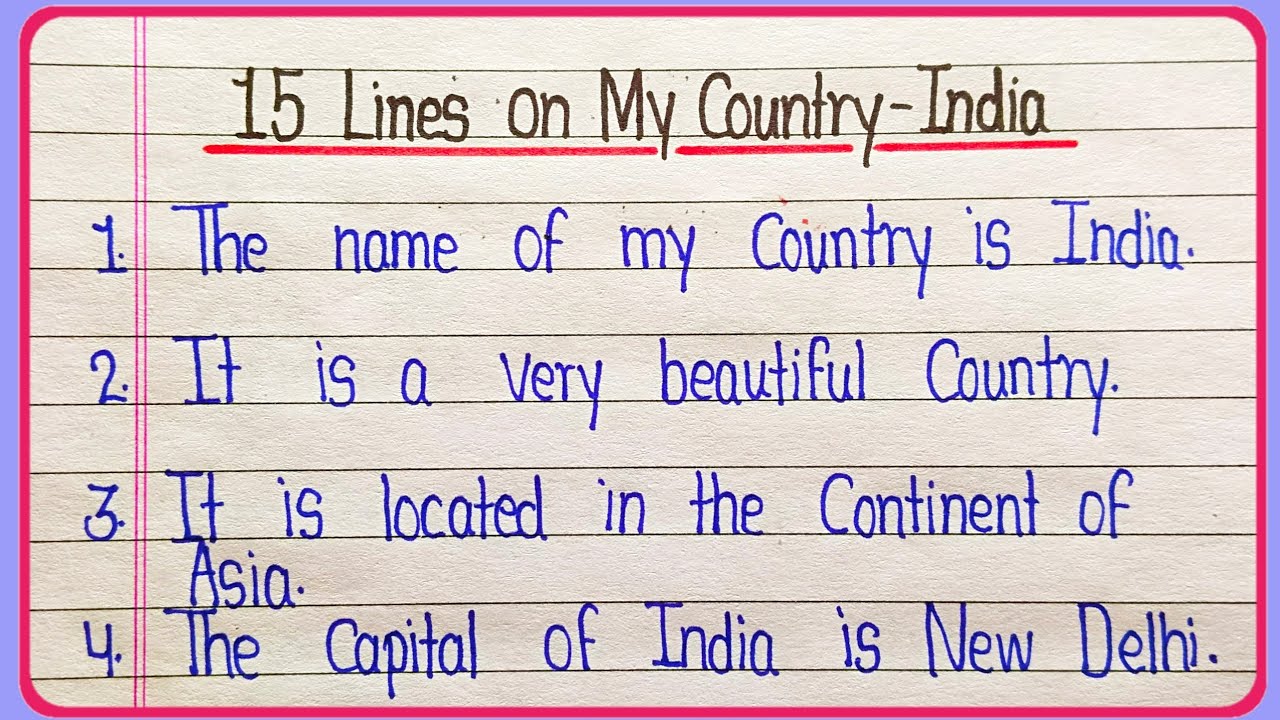 15 Lines on My Country-India
1. The name of my Country is India.
2. It is a very beautiful Country.
3. It is located in the Continent of
Asia.
4. The Capital of India is New Delhi.